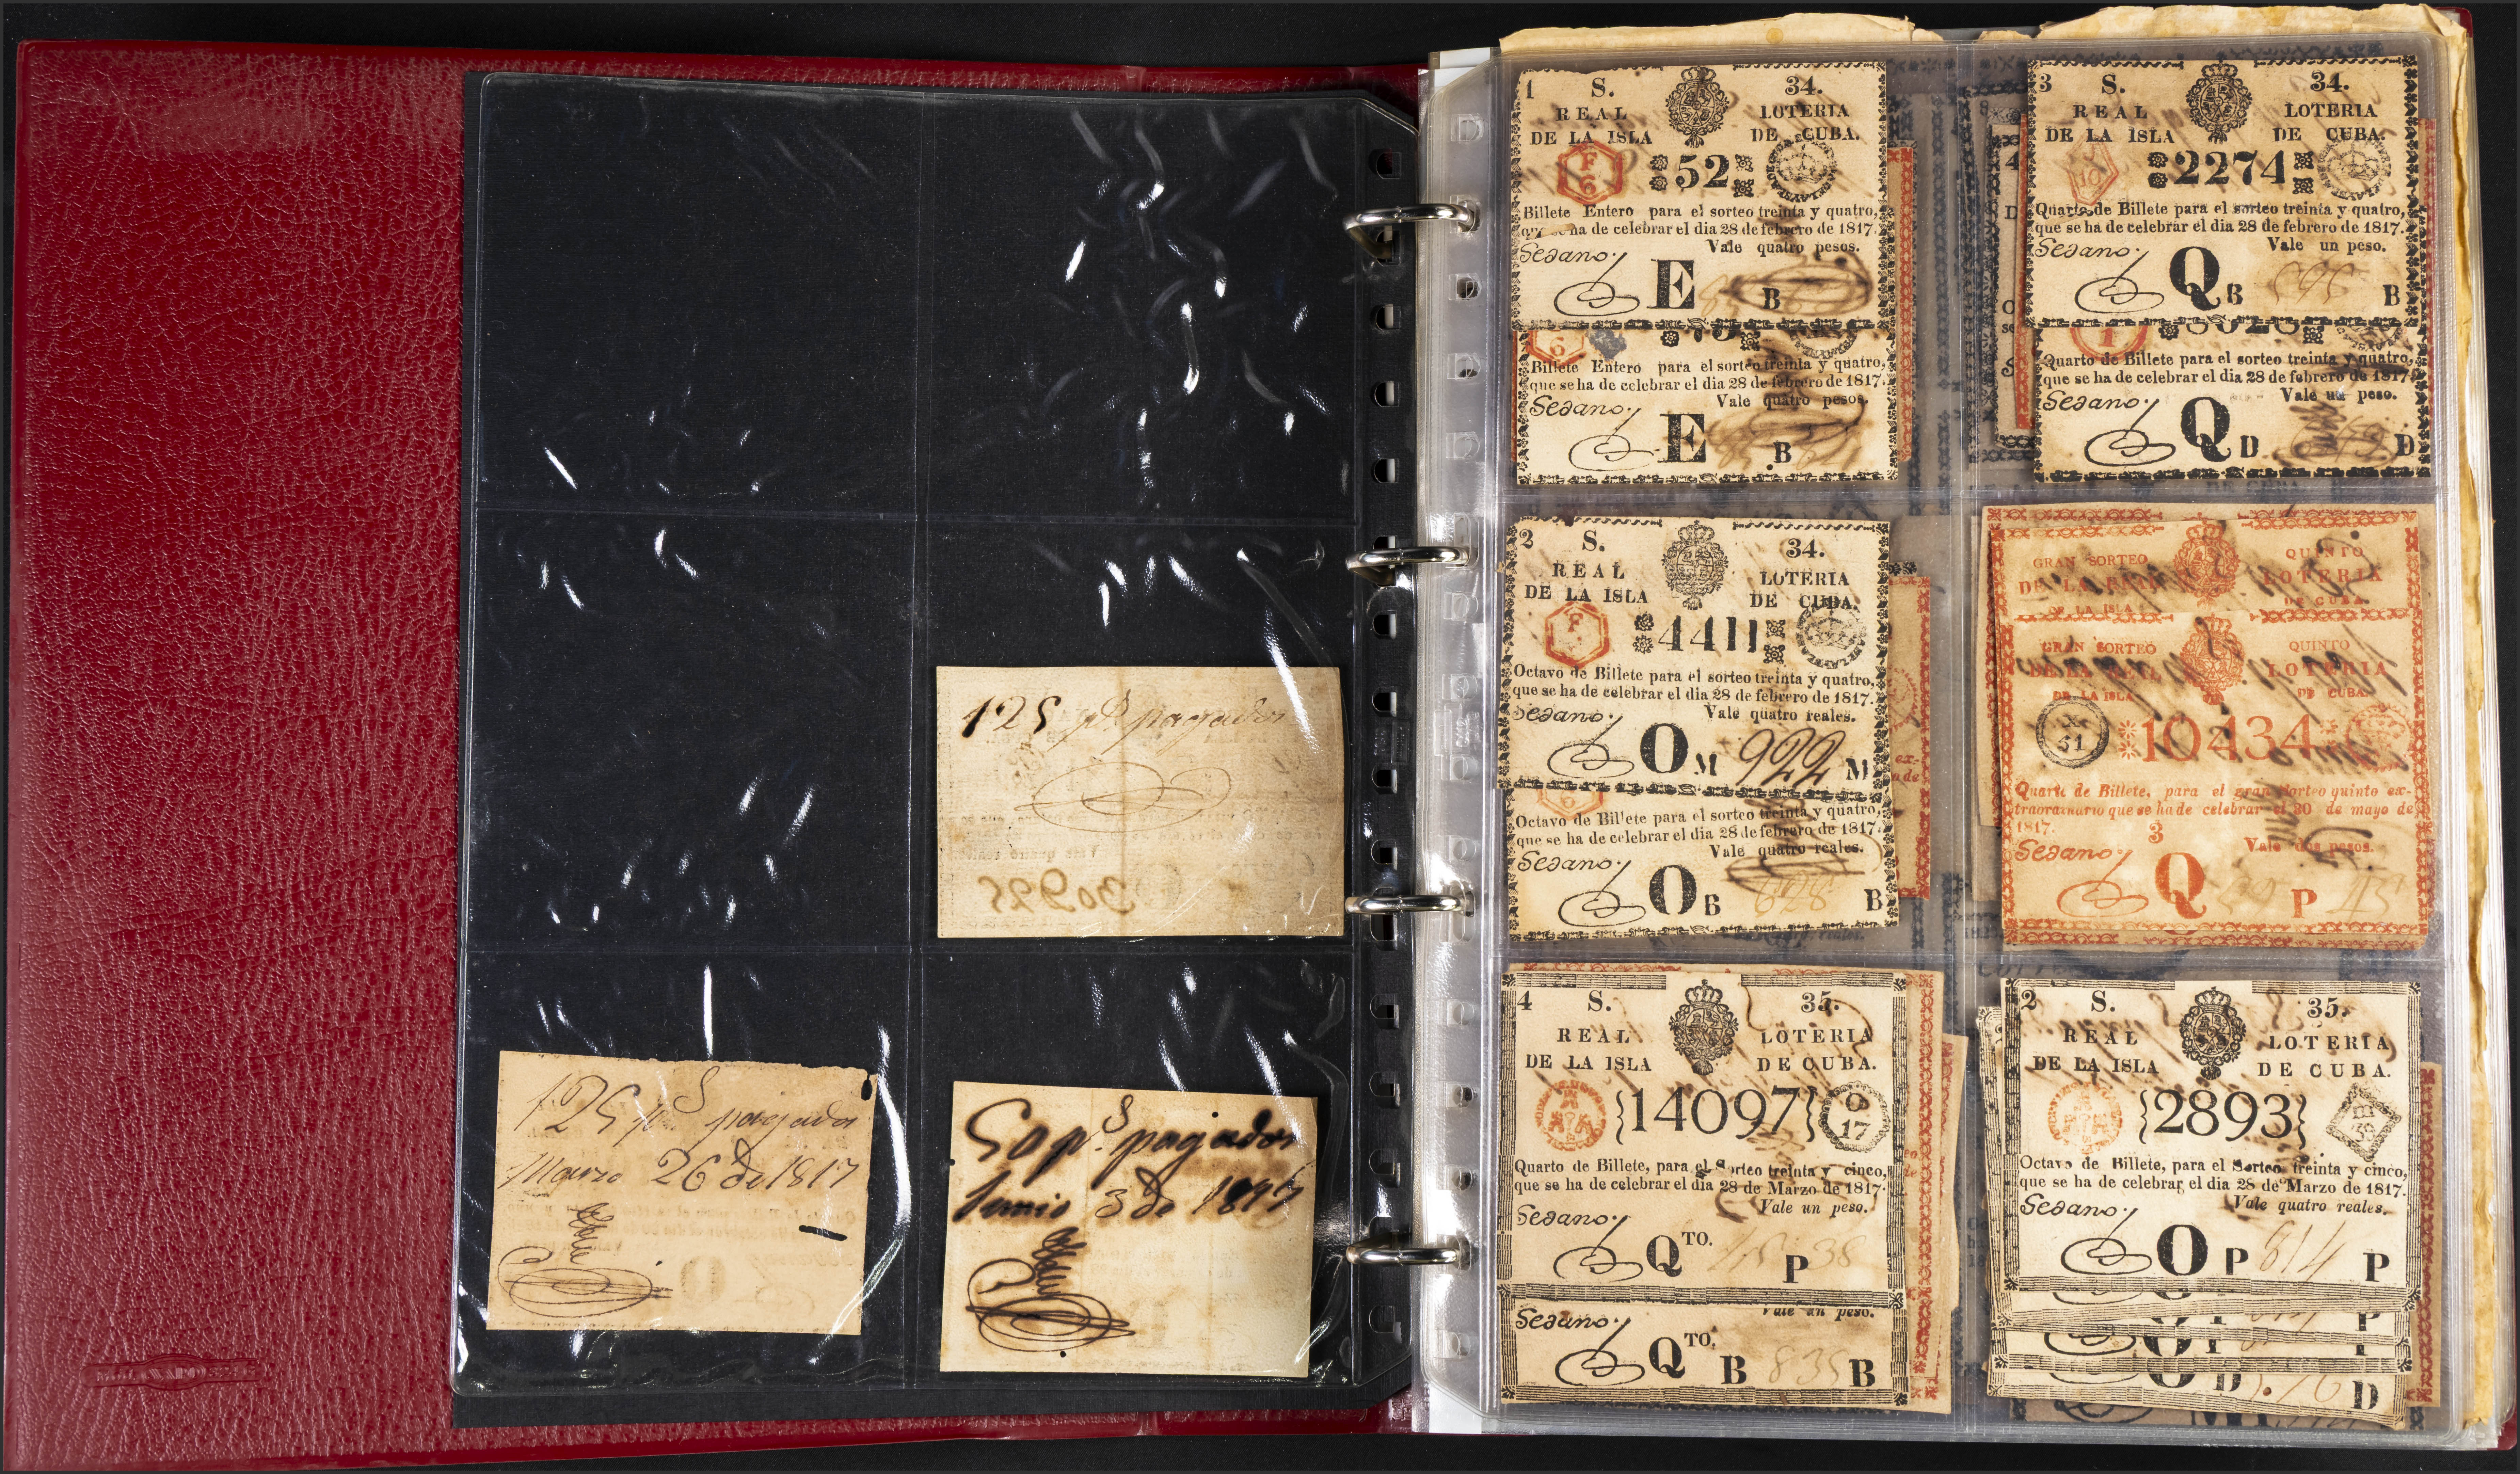 125 p.s pagados
125 p.s pagados
Marzo 26 de 1817
50 p.s pagados
Junio 3 de 1817
1 S. 34.
REAL LOTERIA
DE LA ISLA DE CUBA.
F 6
52
Billete Entero para el sorteo treinta y quatro,
que se ha de celebrar el dia 28 de febrero de 1817.
Vale quatro pesos.
Sedano.
E B
6
Billete Entero para el sorteo treinta y quatro,
que se ha de celebrar el dia 28 de febrero de 1817.
Vale quatro pesos.
Sedano.
E B
3 S. 34.
REAL LOTERIA
DE LA ISLA DE CUBA.
10
2274
Quarto de Billete para el sorteo treinta y quatro,
que se ha de celebrar el dia 28 de febrero de 1817.
Vale un peso.
Sedano.
Q B B
1
Quarto de Billete para el sorteo treinta y quatro,
que se ha de celebrar el dia 28 de febrero de 1817.
Vale un peso.
Sedano.
Q D D
2 S. 34.
REAL LOTERIA
DE LA ISLA DE CUBA.
F
4411
Octavo de Billete para el sorteo treinta y quatro,
que se ha de celebrar el dia 28 de febrero de 1817.
Vale quatro reales.
Sedano.
O M 922 M
6
Octavo de Billete para el sorteo treinta y quatro,
que se ha de celebrar el dia 28 de febrero de 1817.
Vale quatro reales.
Sedano.
O B 628 B
GRAN SORTEO QUINTO
DE LA REAL LOTERIA
DE LA ISLA DE CUBA.
GRAN SORTEO QUINTO
DE LA REAL LOTERIA
DE LA ISLA DE CUBA.
51
10434
Quarto de Billete, para el gran sorteo quinto ex-
traordinario que se ha de celebrar el 30 de mayo de
1817.
3 Vale dos pesos.
Sedano.
Q P
4 S. 35.
REAL LOTERIA
DE LA ISLA DE CUBA.
14097
O 17
Quarto de Billete, para el Sorteo treinta y cinco,
que se ha de celebrar el dia 28 de Marzo de 1817.
Vale un peso.
Sedano.
QTO. P
Vale un peso.
Sedano.
QTO. B 835 B
2 S. 35.
REAL LOTERIA
DE LA ISLA DE CUBA.
2893
Octavo de Billete, para el Sorteo treinta y cinco,
que se ha de celebrar el dia 28 de Marzo de 1817.
Vale quatro reales.
Sedano.
O P 814 P
P
D D